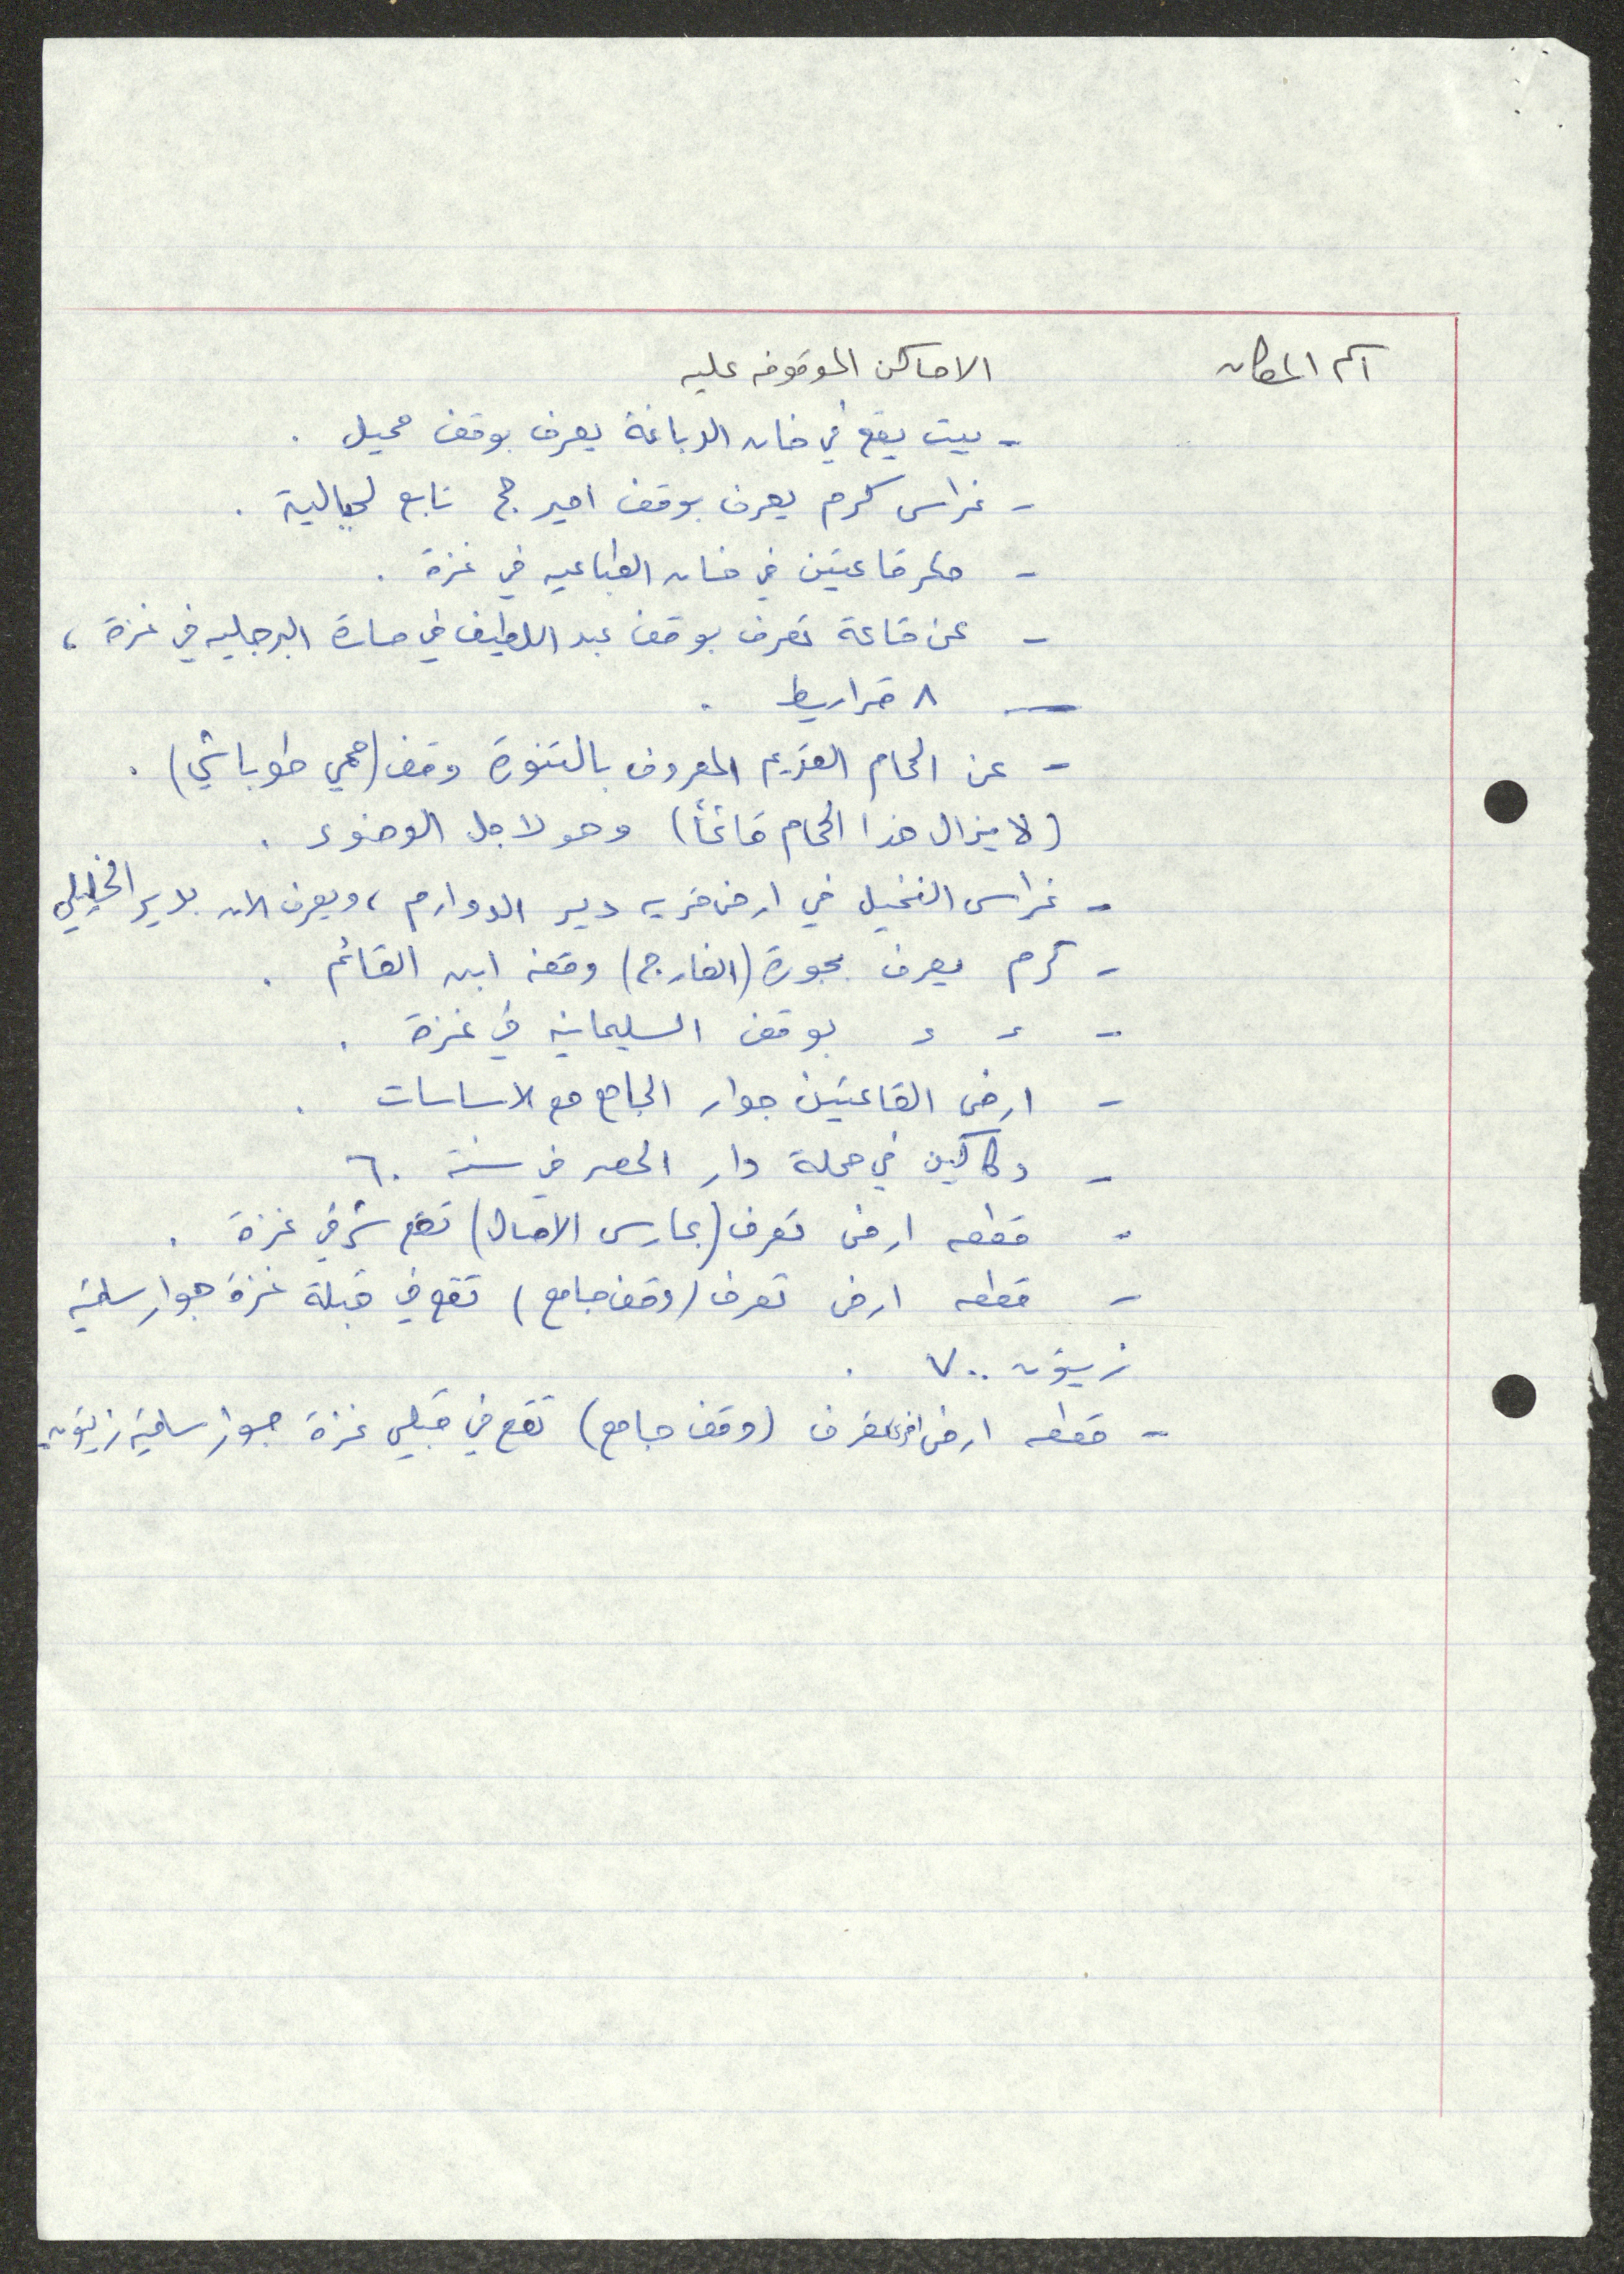 اسم المكان الاماكن الموقوفه عليه
- بيت يقع في خان الدباغة يعرف بوقف محيل .
- غراس كرم يعرف بوقف امير حج تابع لجبالية .
- حكر قاعتين في خان الطباعيه في غزة .
- عن قاعة تعرف بوقف عبد اللطيف في حارة البرجليه في غزة ،
— ٨ قراريط .
- عن الحمام القديم المعروف بالتنورة وقف (حمي طوباشي) .
(لا يزال هذا الحمام قائماً) وهو لاجل الوضوء .
- غراس النخيل في ارض قريه دير الدوارم ، ويعرف الان بدير الخليلي
- كرم يعرف بجورة (الفارج) وقفه ابن القائم .
- ء ء بوقف السليمانيه في غزة .
- ارض القاعتين جوار الجامع مع الاساسات .
- دكاكين في محلة دار الحصر في سنة ٦٠
- قطعه ارض تعرف (بمارس الاصال) تقع شرقي غزة .
- قطعه ارض تعرف (وقف جامع) تقع في قبلة غزة جوار ساقية
زيتون ٧٠٠ .
- قطعه ارض اخرى تعرف (وقف جامع) تقع في قبلي غزة جوار ساقية زيتون